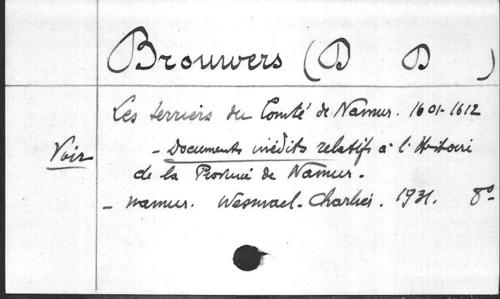 Brouwers (D D )
Les terriers du Comté de Namur. 1601-1612
Voir - Documents inédits relatifs à l'Histoire
de la Province de Namur.
- Namur. Wesmael-Charlier. 1931. 8º